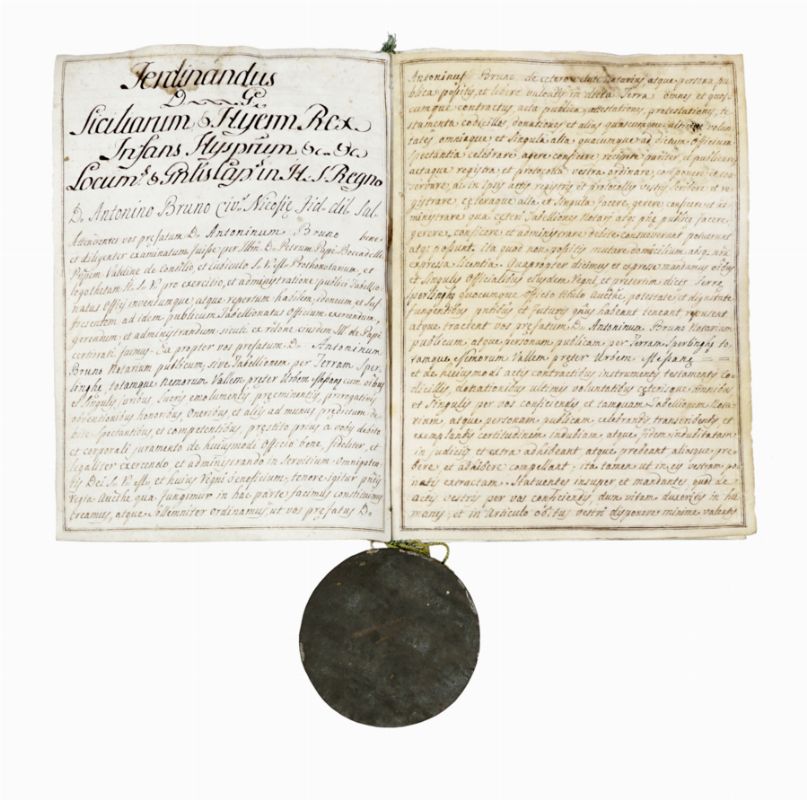 Ferdinandus
D. G.
Siciliarum & Hyerm Rex
Infans Hysprum &c. &c.
Locum. & Gntlis Cap. in H. S. Regno
D. Antonino Bruno Civ. Nicosie fid. dil. Sal.
Attendentes vos prefatum D. Antoninum Bruno bene
et diligenter examinatum, fuisse per D. Petrum Papè
de Consilio, et Prothonotarum, et
Logothetam pro exercitio, et administratione publici Tabellio-
natus Officij invenimusque, atque repertum habilem, idoneum et suf-
ficientem ad idem publicum Tabellionatus officium exercendum,
gerendum, et administrandum sicuti ex rtione eiusdem de Papè
certiorati fuimus. Ea propter vos prefatum D. Antoninum
Bruno Notarium publicum, sive Tabellionem per Terram Sper-
linghe totamque Nemorum Vallem, preter Urbem cum oibus
et singulis juribus lucris emolumentis preeminentijs, prerogativis
obventionibus honoribus, oneribus et alijs ad munus predictum de-
bite spectantibus, et competentibus, prestito prius a vobis debito
et corporali juramento de huiusmodi officio bene, fideliter, et
legaliter exercendo et administrando in servitium Omnipoten-
tis Dei et huius Regni beneficium, tenore
Regia Aucthe qua fungimur in hac parte facimus constituimus
creamus, atque sollemniter ordinamus, ut vos prefatus D.
Antoninus Bruno de cetero velute Notarius atque persona pu-
blica possitis, et libere valeatis in dicta Terra omnes et quos-
cumque contractus, acta publica, attestationes, protestationes, te-
stamenta codicillos donationes et alias quascumque ultimas volun-
tates omniaque et singula alia quecumque ad dictum Officium
spectantia celebrare, agere conficere, recipere pariter, et publicare
actaque registra, et protocolla vestra ordinare, componere
ac in ipsis actis registris et protocollis vestris scribere et re-
gistrare ceteraque alia, et singula facere, gerere, conficere et ad-
ministrare que ceteri Tabelliones Notarij publice facere,
gerere, conficere et administrare debite consueverunt potuerunt
atque possunt. ita quod non possitis mutare domicilium
expressa licentia. Quapropter dicimus et expresse mandamus oibus
et singulis Officialibus eiusdem Regni, et preterim dicte Terre
Sperlinghe quocumque officio titulo Aucthe, potestate et dignitate
fungentibus pntibus et futuris qnus habeant teneant reputent
atque tractent vos prefatum D. Antoninum Bruno Notarium
publicum atque personam publicam per Terram Sperlinghe to-
tamque Nemorum Vallem preter Urbem Messane
et de huiusmodi actis contractibus instrumentis testamentis Co-
dicillis, donationibus ultimis voluntatibus ceterisque omnibus
et singulis per vos conficiendis et tamquam Tabellionem Nota-
rium, atque personam publicam, celebrandis transcribendis et
exemplandis certitudinem indubiam atque fidem indubitatam
in judicijs et extra adhibeant atque prebeant aliosque pre-
bere, et adhibere compellant, ita tamen ut in eis vestram po-
natis extractam. Statuentes insuper et mandantes quod de
actis vestris per vos conficiendis dum vitam duxeritis in hu-
manis, et in Articulo obitus vestri disponere minime valeatis